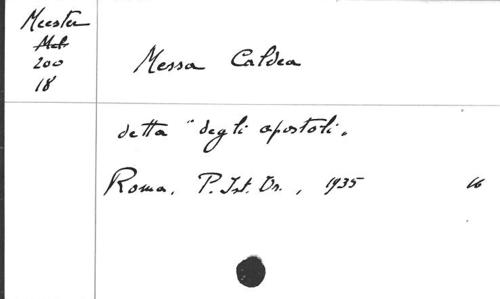 Meester
200
18
Messa Caldea
detta "degli apostoli"
Roma, P. Ist. Or., 1935 16